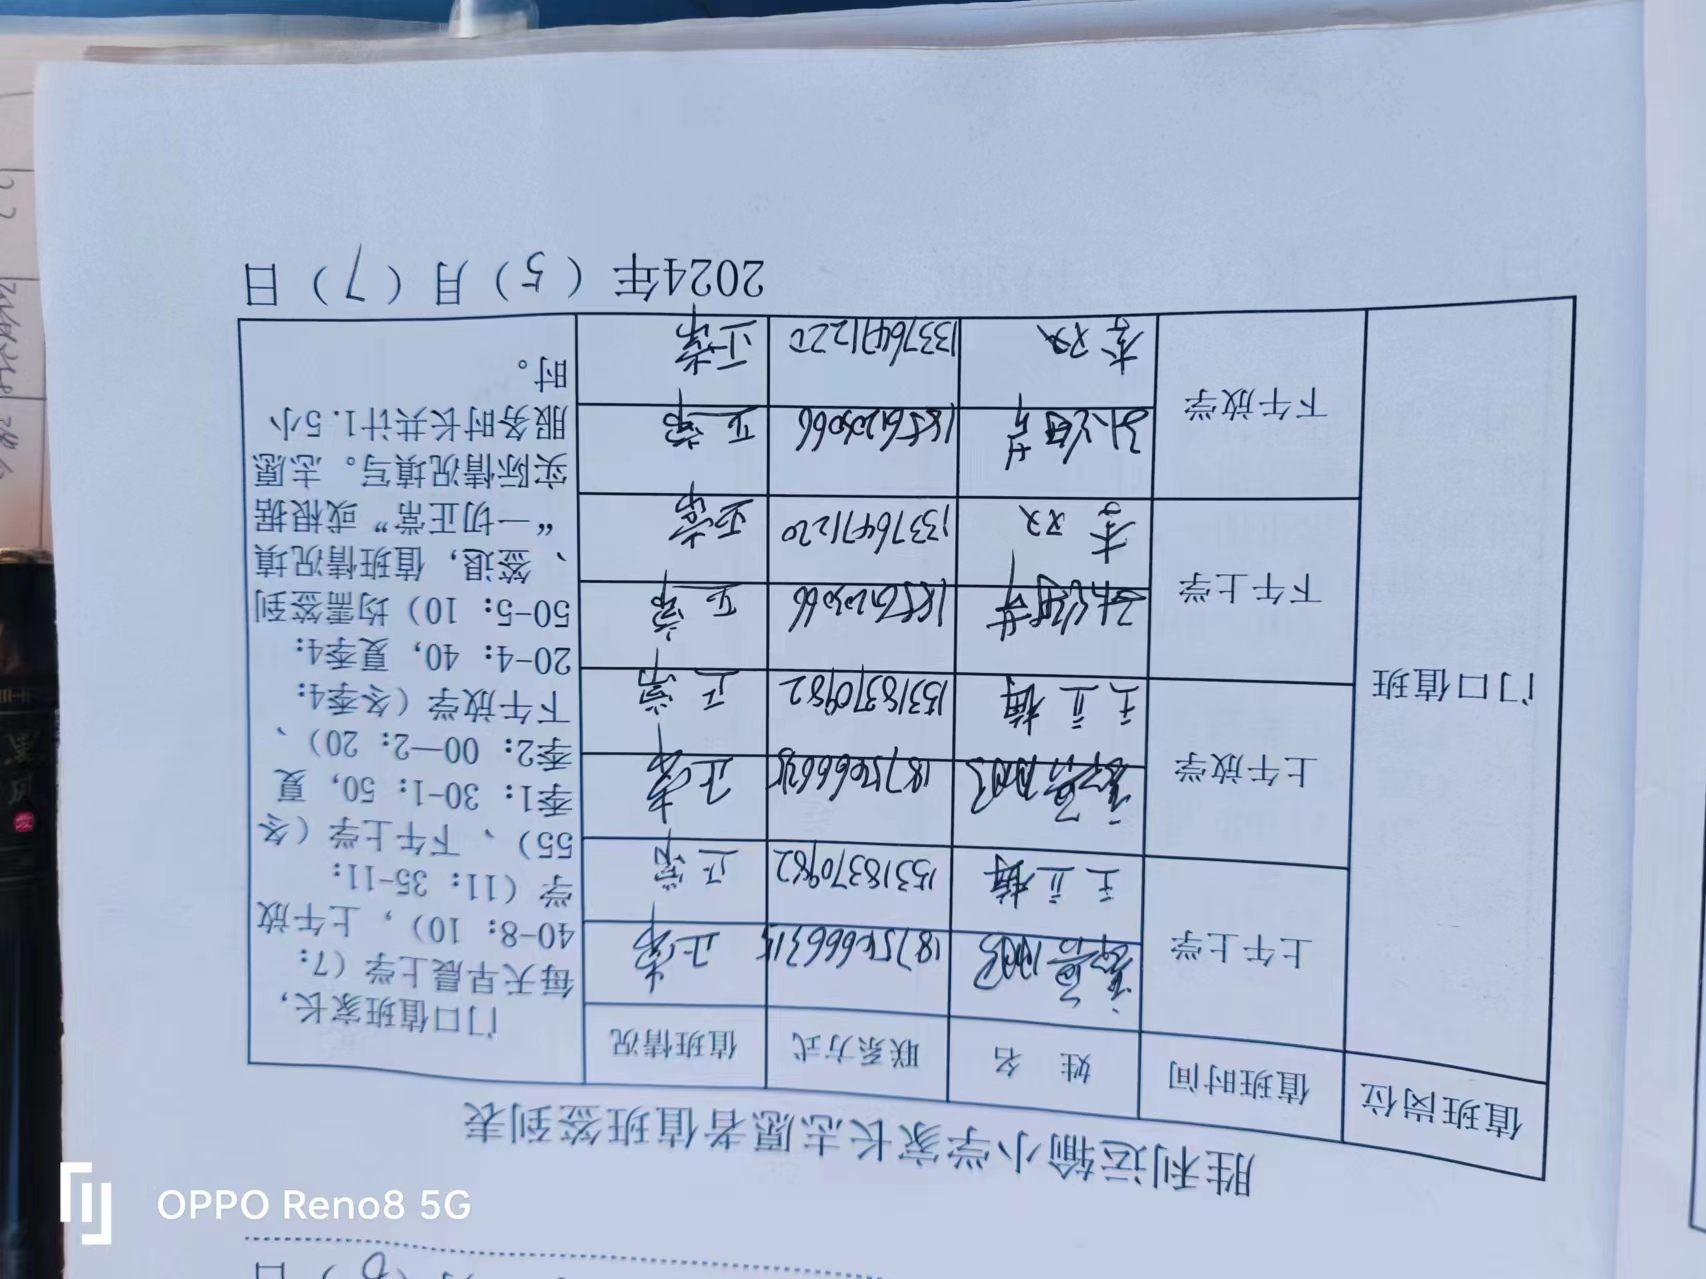 胜利运输小学家长志愿者值班签到表
值班岗位 值班时间 姓 名 联系方式 值班情况
门口值班
上午上学
正常
王立梅 15318370982 正常
上午放学
正常
王立梅 15318370982 正常
下午上学
正常
李双 13376471220 正常
下午放学
正常
李双 13376471220 正常
门口值班家长,
每天早晨上学(7:
40-8: 10), 上午放
学(11: 35-11:
55)、下午上学(冬
季1: 30-1: 50, 夏
季2: 00—2: 20)、
下午放学(冬季4:
20-4: 40, 夏季4:
50-5: 10)均需签到
、签退, 值班情况填
“一切正常”或根据
实际情况填写。志愿
服务时长共计1.5小
时。
2024年(5)月(7)日
OPPO Reno8 5G